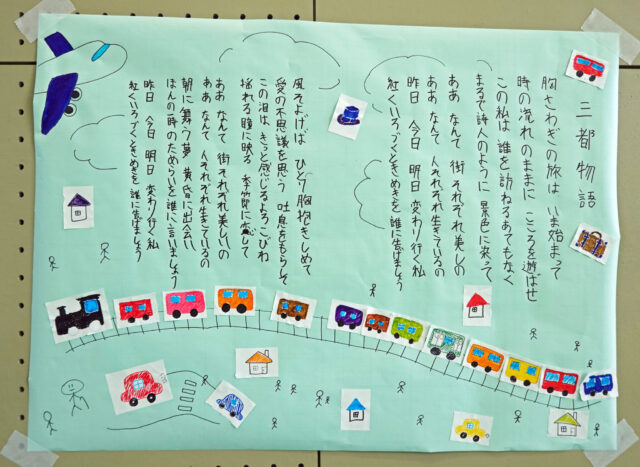 三都物語
胸さわぎの旅は いま始まって
時の流れのままに こころを遊ばせ
この私は 誰を訪ねるあてもなく
まるで詩人のように 景色に染って
ああ なんて 街 それぞれ美しの
ああ なんて 人それぞれ生きているの
昨日 今日 明日 変わり行く私
紅くいろづくときめきを 誰に告げましょう
風そよげば ひとり胸抱きしめて
愛の不思議を思う 吐息をもらして
この泪は きっと感じるよろこびね
揺れる瞳に映る 季節に恋して
ああ なんて 街それぞれ美しいの
ああ なんて 人それぞれ生きているの
朝に舞う夢 黄昏に出合い
ほんの一時のためらいを 誰に言いましょう
昨日 今日 明日 変わり行く私
紅くいろづくときめきを 誰に告げましょう